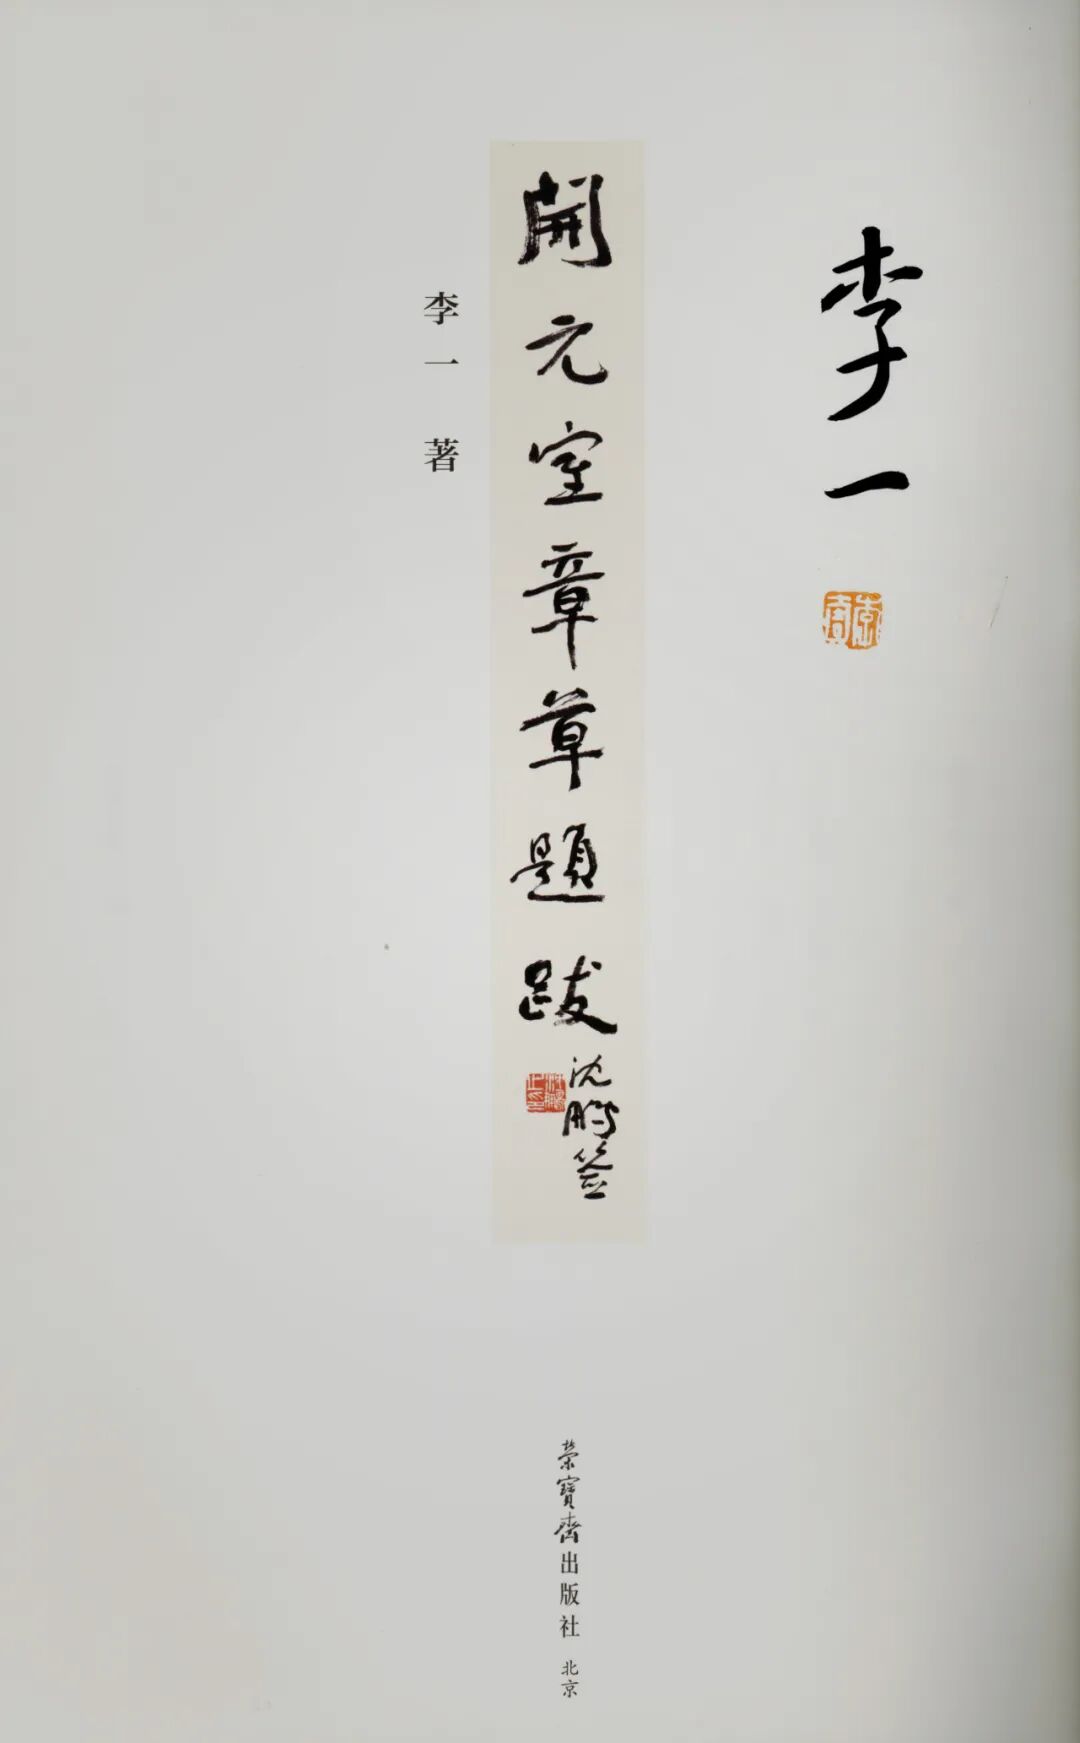 李一
開元室章草題跋
沈鹏签
李一 著
榮寶齋出版社 北京